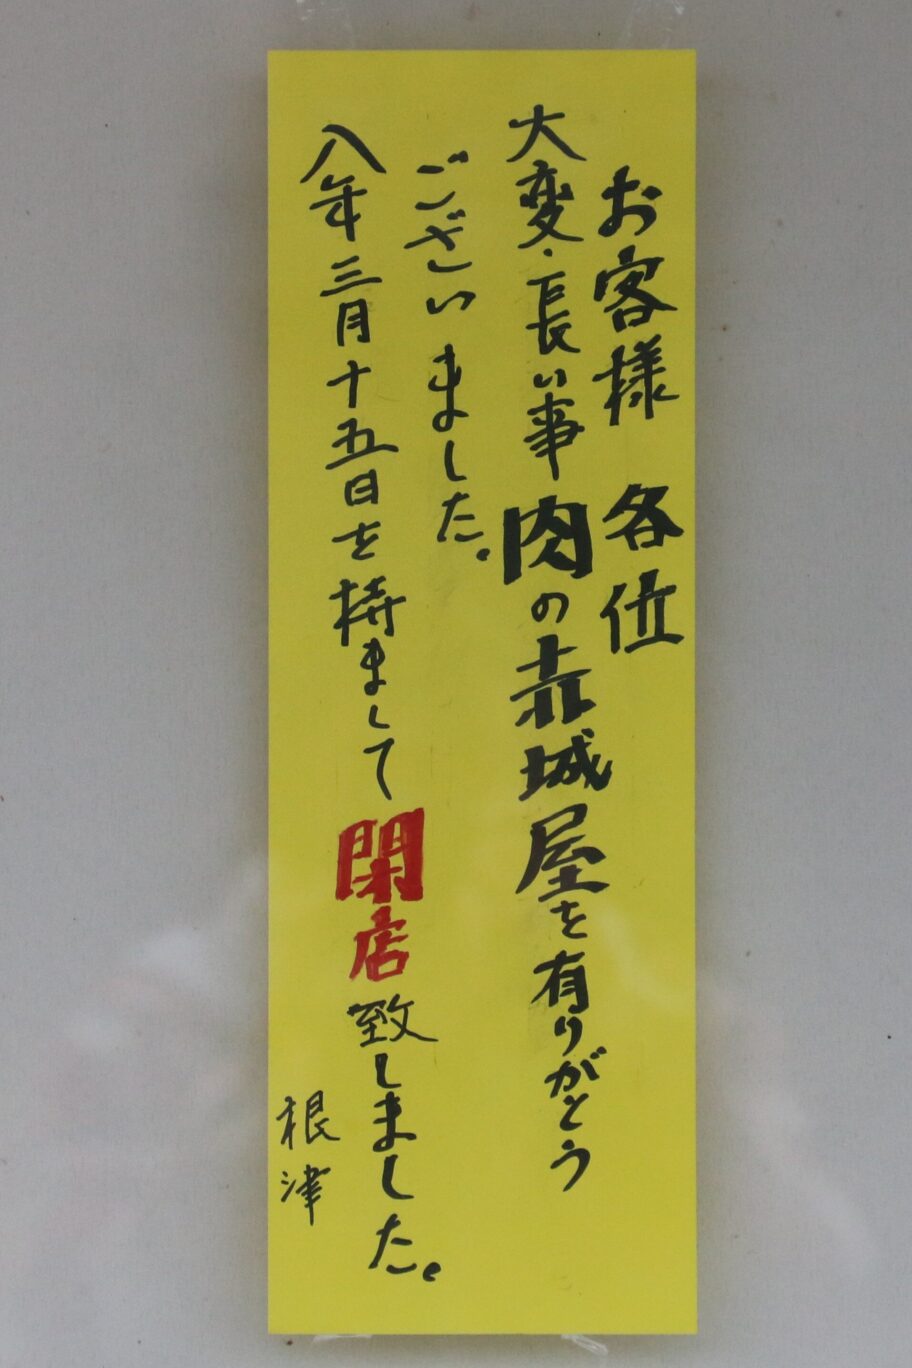 お客様 各位
大変・長い事肉の赤城屋を有りがとう
ございました。
八年三月十五日を持まして閉店致しました。
根津